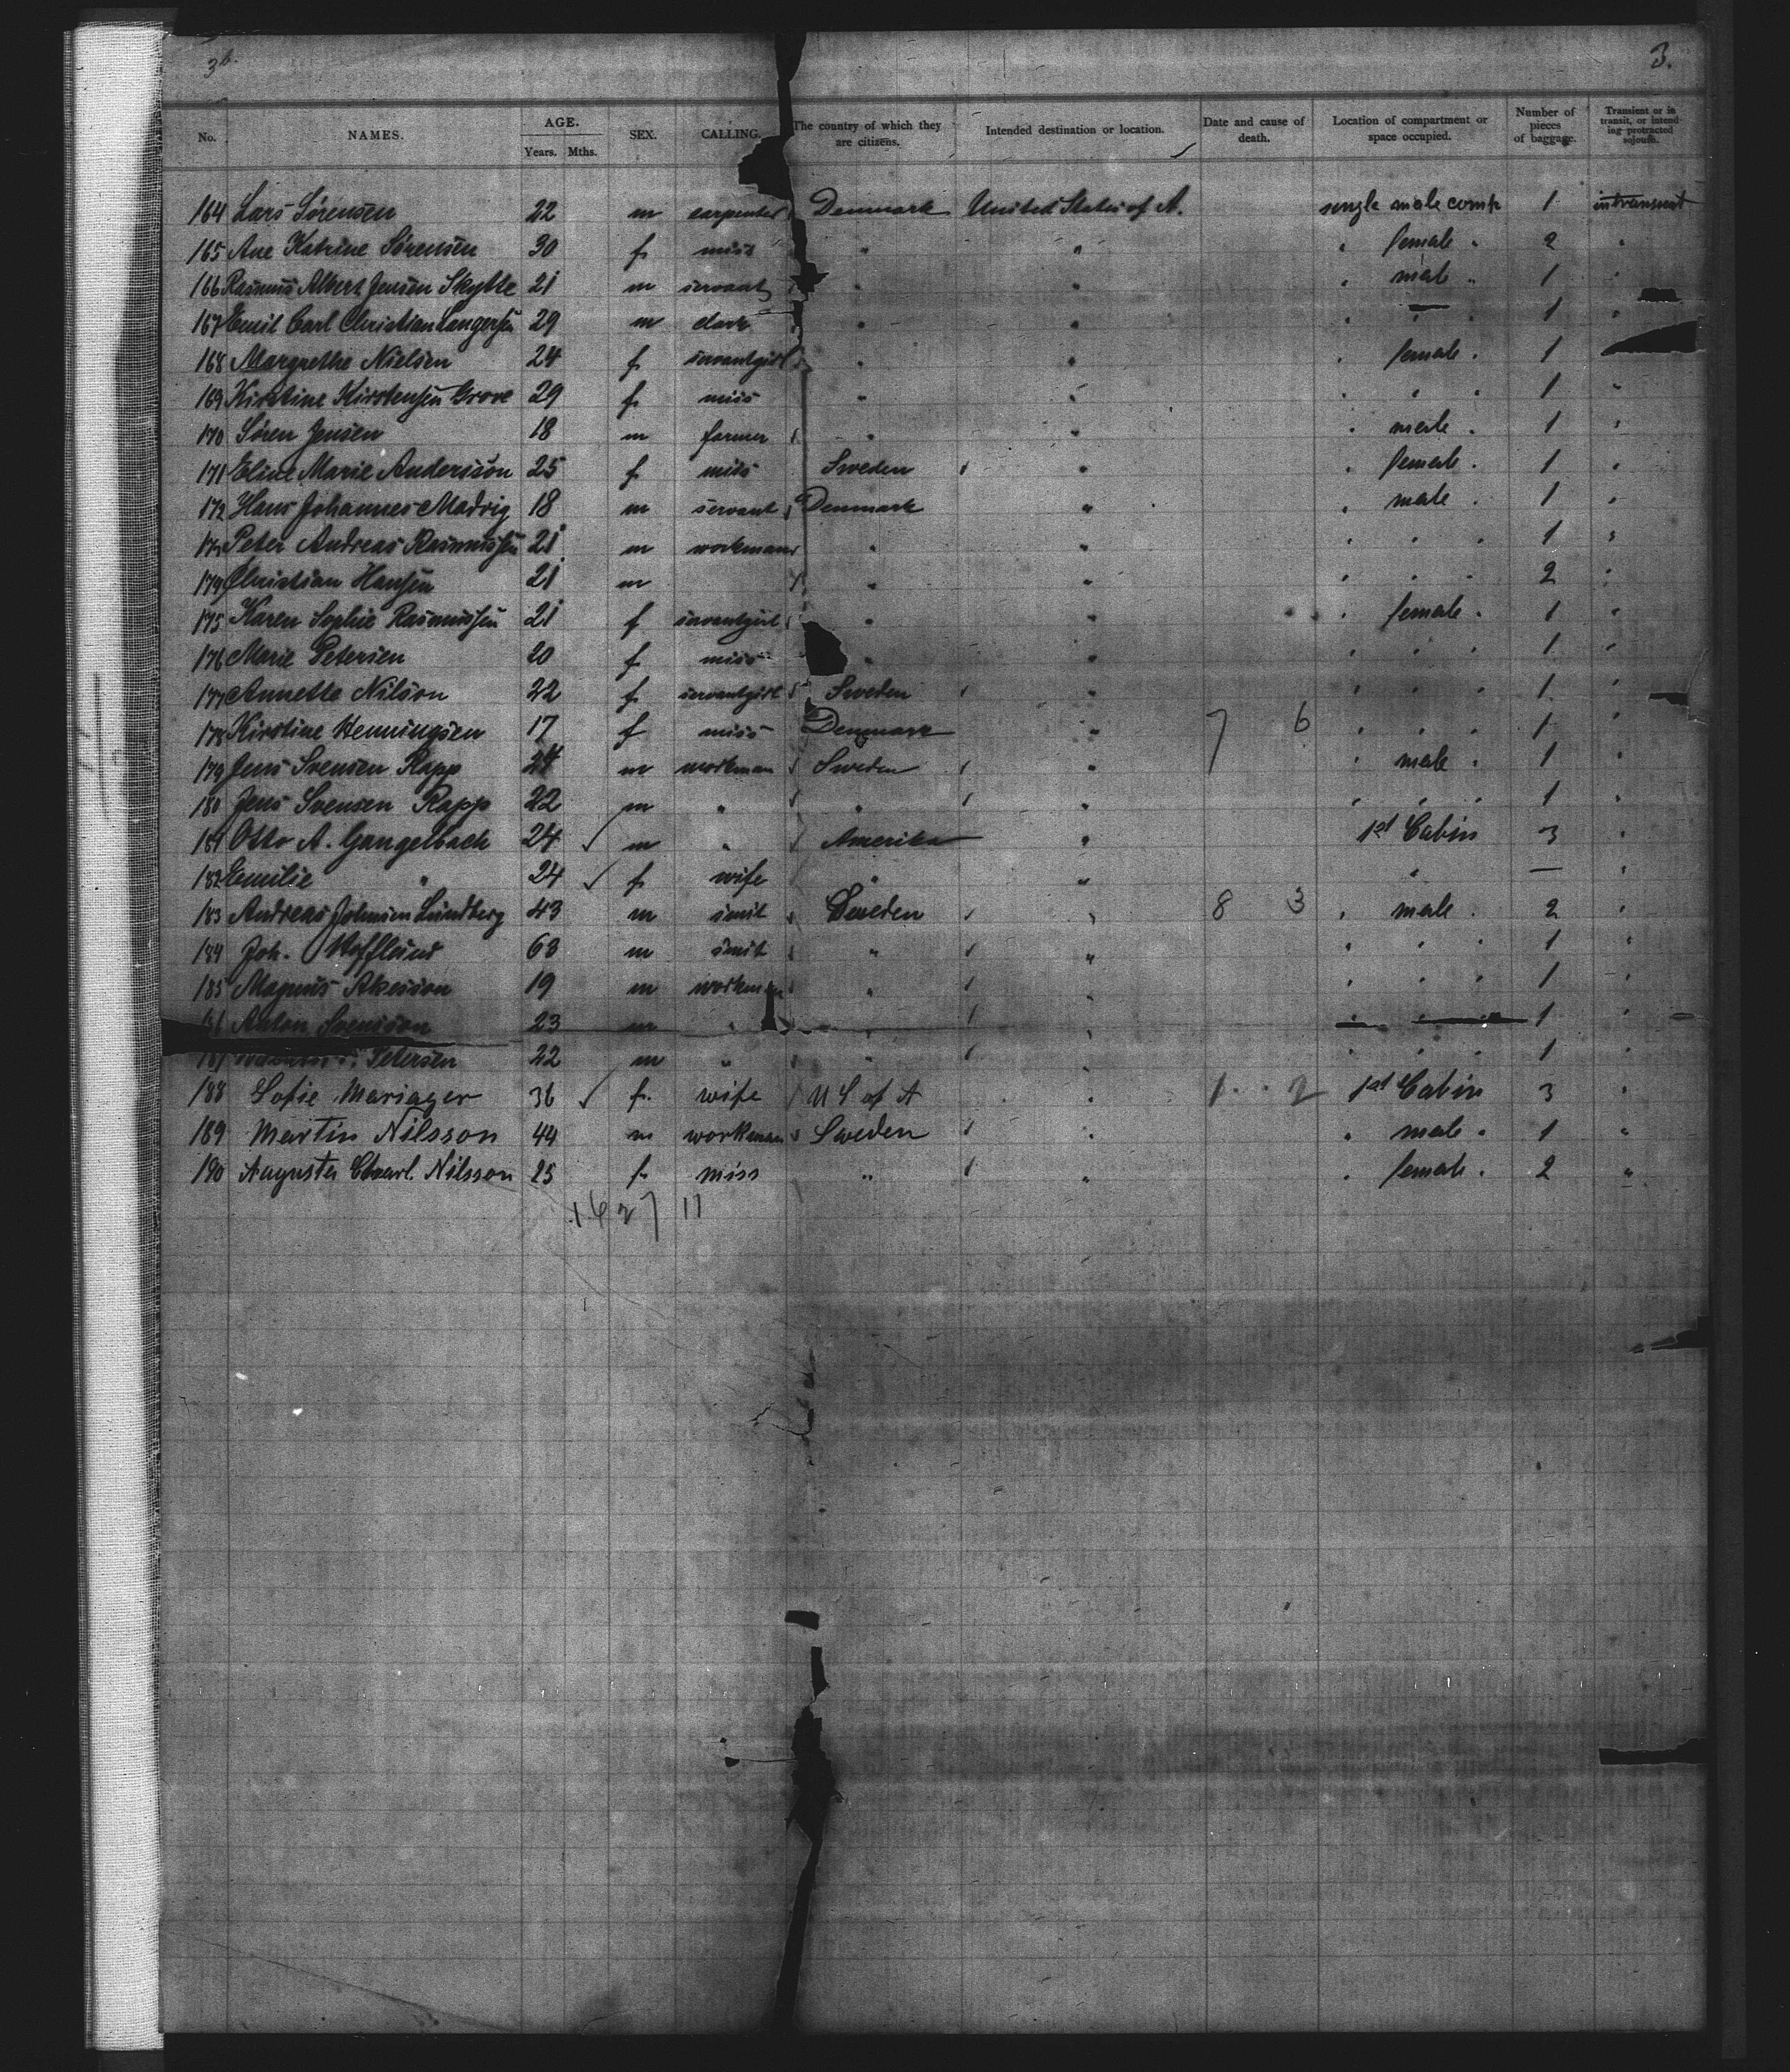 3b. 3.
No. NAMES. AGE. Years. Mths. SEX. CALLING. The country of which they are citizens. Intended destination or location. Date and cause of death. Location of compartment or space occupied. Number of pieces of baggage. Transient or in transit, or intending protracted sojourn.
164 Lars Sörensen 22 m carpenter Denmark United States of A. single male comp 1 intransit
165 Ane Katrine Sörensen 30 f. miss " " " female " 2 "
166 Rasmus Albert Jensen Skytte 21 m servant " " " male " 1 "
167 Emil Carl Christian 29 m clark " " " — " 1 "
168 Margrethe Nielsen 24 f. servantgirl " " " female " 1
169 Kirstine Kirstensen Grove 29 f. miss " " " " " 1 "
170 Sören Jensen 18 m farmer " " " male " 1 "
171 Eline Marie Andersson 25 f. miss Sweden " " female " 1 "
172 Hans Johannes Madvig 18 m servant Denmark " " male " 1 "
173 Peter Andreas Rasmussen 21 m workman " " " " " 1 "
174 Christian Hansen 21 m " " " " " 2 "
175 Karen Sophie Rasmussen 21 f servantgirl " " " female " 1 "
176 Marie Petersen 20 f. miss " " " " " 1 "
177 Annette Nilson 22 f. servantgirl Sweden " " " " 1 "
178 Kirstine Henningsen 17 f miss Denmark " 7 6 " " " 1 "
179 Jens Svensen Rapp 24 m workman Sweden " " male " 1 "
180 Jens Svensen Rapp 22 m " " " " " " 1 "
181 Otto A. Gangelbach 24 ✓ m " Amerika " 1st Cabin 3 "
182 Emilie " 24 ✓ f. wife " " " — "
183 Andreas Johnsen Lundberg 43 m smit Sweden " 8 3 " male " 2 "
184 Joh. Hofflund 63 m smit " " " " " 1 "
185 Magnus Akesson 19 m workman " " " " " 1 "
Anton Svensson 23 m " " " " " 1 "
187 Petersen 22 m " " " " " " 1 "
188 Sofie Mariager 36 ✓ f. wife U S of A " 1 2 1st Cabin 3 "
189 Martin Nilsson 44 m workman Sweden " " male " 1 "
190 Augusta Charl. Nilsson 25 f. miss " " " female " 2 "
16 27 11